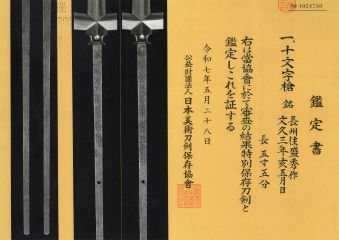 № 1024730
鑑定書
一、十文字槍 銘 長州住盛秀作
文久三年亥五月日
長 五寸五分
右は當協會に於て審査の結果特別保存刀剣と
鑑定しこれを証する
令和七年五月二十八日
公益財團法人 日本美術刀剣保存協會